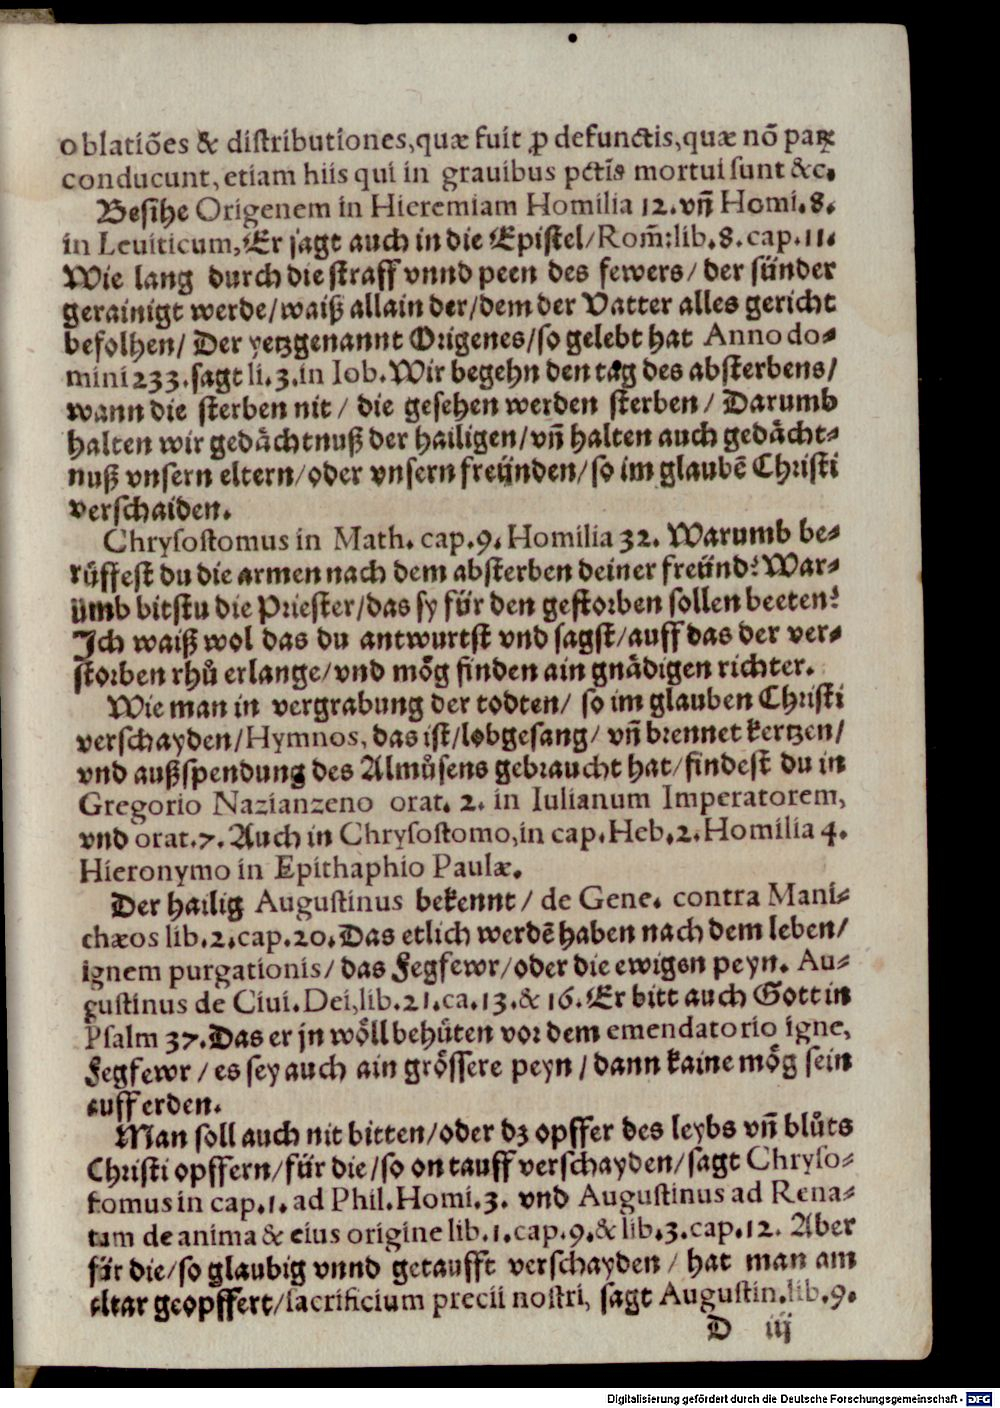 oblatiões & distributiones, quæ fuit ꝓ defunctis, quæ nõ paꝝ
conducunt, etiam hiis qui in grauibus pctis mortui sunt &c.
Besihe Origenem in Hieremiam Homilia 12. vñ Homi. 8.
in Leuiticum, Er sagt auch in die Epistel/ Rom̃: lib. 8. cap. 11.
Wie lang durch die straff vnnd peen des fewers/ der sünder
gerainigt werde/ waiß allain der/ dem der Vatter alles gericht
befolhen/ Der yetzgenannt Origenes/ so gelebt hat Anno do⸗
mini 233. sagt li. 3. in Iob. Wir begehn den tag des absterbens/
wann die sterben nit/ die gesehen werden sterben/ Darumb
halten wir gedächtnuß der hailigen/ vñ halten auch gedächt⸗
nuß vnsern eltern/ oder vnsern freünden/ so im glaubẽ Christi
verschaiden.
Chrysostomus in Math. cap. 9. Homilia 32. Warumb be⸗
rüffest du die armen nach dem absterben deiner freünd? War⸗
umb bitstu die Priester/ das sy für den gestorben sollen beeten?
Ich waiß wol das du antwurtst vnd sagst/ auff das der ver⸗
storben rhů erlange/ vnd mög finden ain gnädigen richter.
Wie man in vergrabung der todten/ so im glauben Christi
verschayden/ Hymnos, das ist/ lobgesang/ vñ brennet kertzen/
vnd außspendung des Almůsens gebraucht hat/ findest du in
Gregorio Nazianzeno orat. 2. in Iulianum Imperatorem,
vnd orat. 7. Auch in Chrysostomo, in cap. Heb. 2. Homilia 4.
Hieronymo in Epithaphio Paulæ.
Der hailig Augustinus bekennt/ de Gene. contra Mani⸗
chæos lib. 2. cap. 20. Das etlich werdẽ haben nach dem leben/
ignem purgationis/ das Fegfewr/ oder die ewigen peyn. Au⸗
gustinus de Ciui. Dei, lib. 21. ca. 13. & 16. Er bitt auch Gott in
Psalm 37. Das er jn wöll behüten vor dem emendatorio igne,
Fegfewr/ es sey auch ain grössere peyn/ dann kaine mög sein
auff erden.
Man soll auch nit bitten/ oder dz opffer des leybs vñ blůts
Christi opffern/ für die/ so on tauff verschayden/ sagt Chryso⸗
tomus in cap. 1. ad Phil. Homi. 3. vnd Augustinus ad Rena⸗
tum de anima & eius origine lib. 1. cap. 9. & lib. 3. cap. 12. Aber
für die/ so glaubig vnnd getaufft verschayden/ hat man am
altar geopffert/ sacrificium precii nostri, sagt Augustin. lib. 9.
D iij
Digitalisierung gefördert durch die Deutsche Forschungsgemeinschaft - DFG